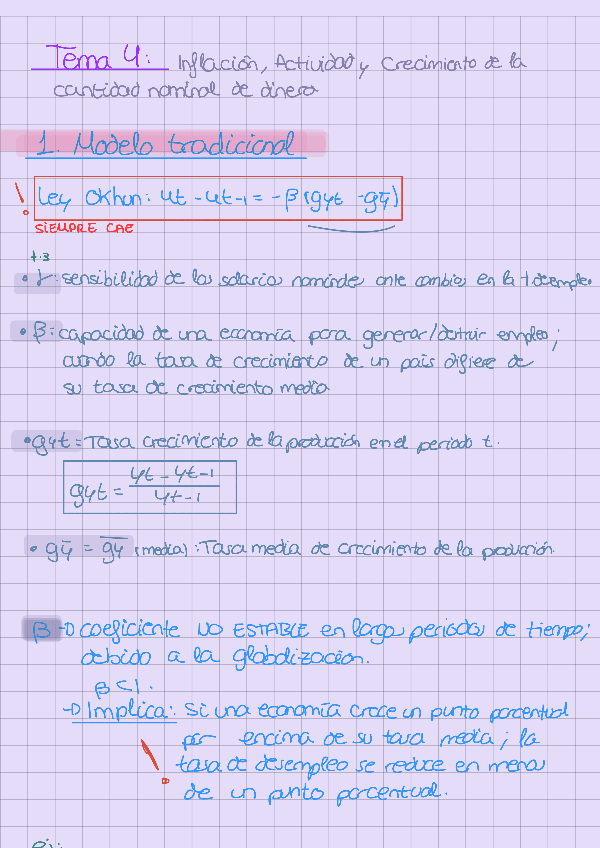 Tema 4: Inflación, Actividad y Crecimiento de la
cantidad nominal de dinero
1. Modelo tradicional
! Ley Okhun: ut - ut-1 = -β (gyt - gȳ)
SIEMPRE CAE
t.3
• γ: sensibilidad de los salarios nominales ante cambios en la t desempleo
• β: capacidad de una economía para generar/destruir empleo;
cuando la tasa de crecimiento de un país difiere de
su tasa de crecimiento media
• gyt = Tasa crecimiento de la producción en el periodo t.
gyt = (yt - yt-1) / (yt-1)
• gȳ = \overline{gy} (media): Tasa media de crecimiento de la producción.
β → coeficiente NO ESTABLE en largos periodos de tiempo;
debido a la globalización.
β < 1.
→ Implica: Si una economía crece un punto porcentual
por encima de su tasa media; la
! tasa de desempleo se reduce en menos
de un punto porcentual.